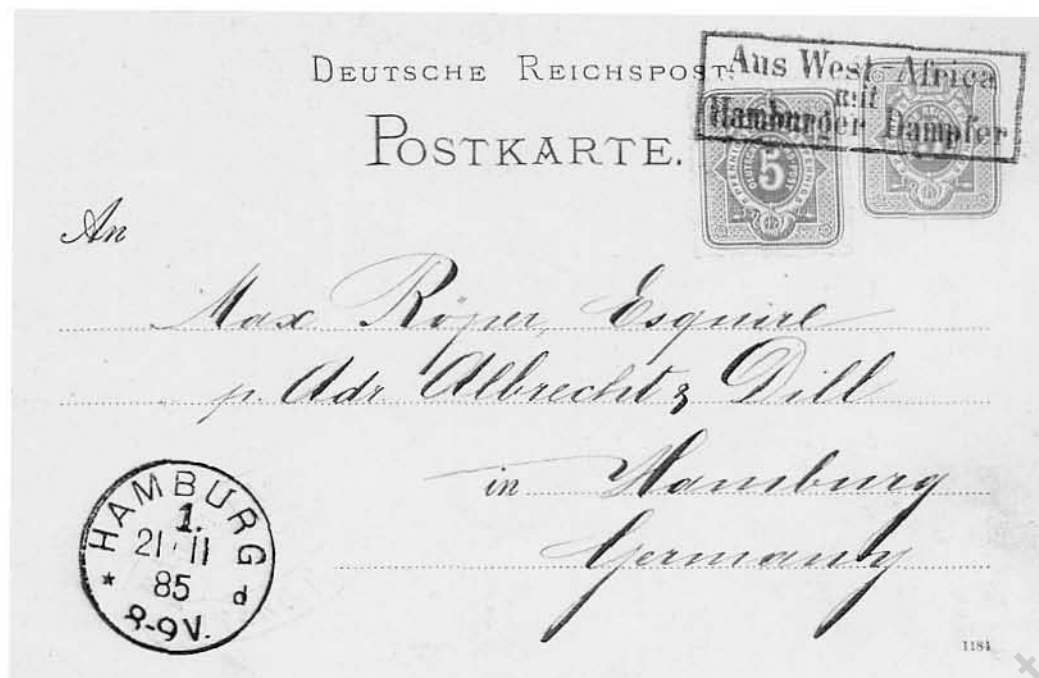 DEUTSCHE REICHSPOST.
POSTKARTE.
Aus West-Africa
mit
Hamburger Dampfer
5
An
Max Röper, Esquire
p. Adr. Albrecht & Dill
in Hamburg
Germany
HAMBURG
1.
21 11
85
* d
8-9V.
1184